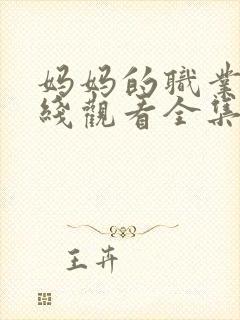 妈妈的職業
綫觀看全集
王卉